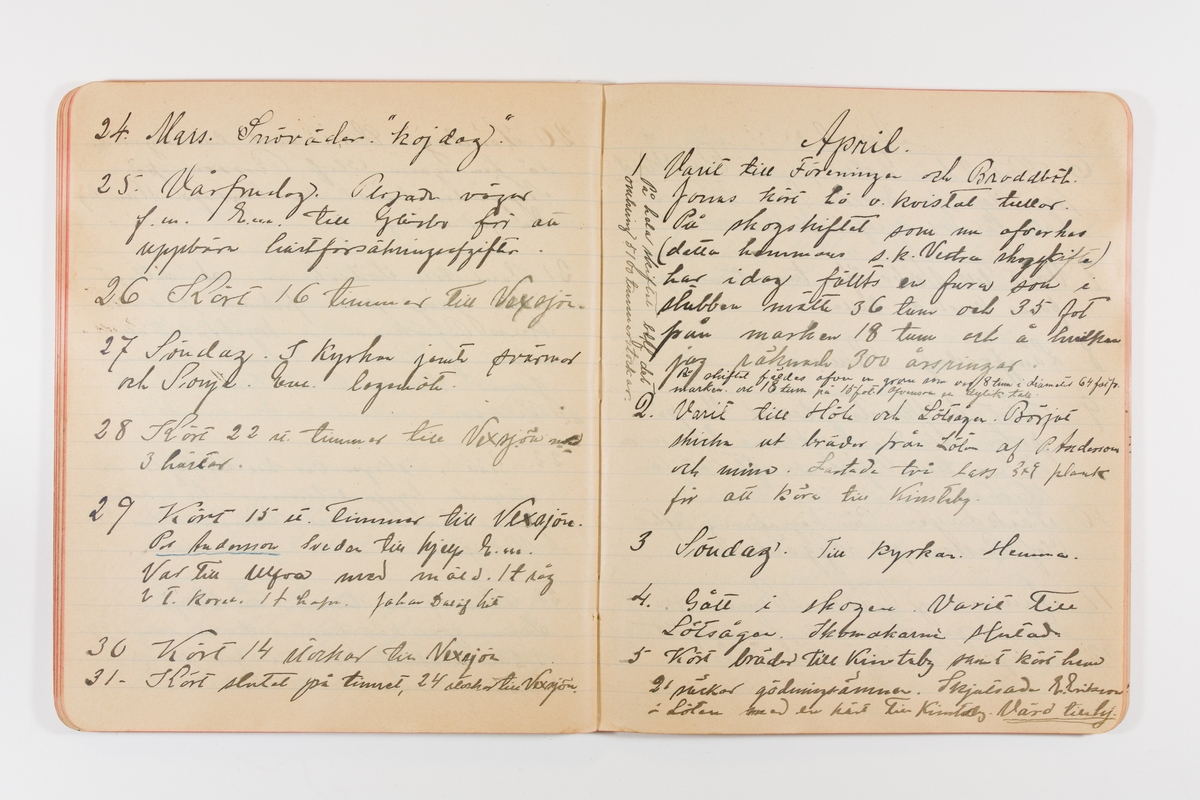 24. Mars. Snöväder. "kojdag".
25. Vårfrudag. Plogade vägar
f.m. E.m. till för att
uppbära hästförsäkringsafgifter.
26 Kört 16 timmer till Vexsjön.
27 Söndag. I kyrkan jemte svärmor
och Sonja. Em. logemöte.
28 Kört 22 st. timmer till Vexsjön med
3 hästar.
29 Kört 15 st. timmer till Vexsjön.
Per Andersson Svedan till hjelp E.m.
Var till Ulfvsa med mäld. 1 t råg
2 t. korn. 1 t hafr. Johan
30 Kört 14 stockar till Vexsjön
31- Kört slutet på timret, 24 stockar till Vexsjön.
April.
1 Varit till Föreningen och Broddböt.
kört hö o. kvistat tallar.
På skogskiftet som nu afverkas
(detta hemmans s.k. Vestra skogskifte)
har idag fällts en fura som i
stubben mätte 36 tum och 35 fot
från marken 18 tum och å hvilken
jag räknade 300 årsringar.
På skiftet fäldes äfven en gran som var 8 tum i diameter 64 fot fr.
marken. och 16 tum på 15 fot. äfvensom en dylik tall.
På hela skiftet blef det
omkring 5100 timmerstockar.
2. Varit till Höte och Lötsågen. Börjat
skicka ut bräder från Löten af P. Andersson
och mina. Lastade två lass 3x9 plank
för att köra till Kinstaby.
3 Söndag. Till kyrkan. Hemma.
4. Gått i skogen. Varit till
Lötsågen. Skomakarne slutade
5 Kört bräder till Kinstaby samt kört hem
21 säckar gödningsämnen. Skjutsade E. Eriksson
i Löten med en häst till Kinstaby. Värd